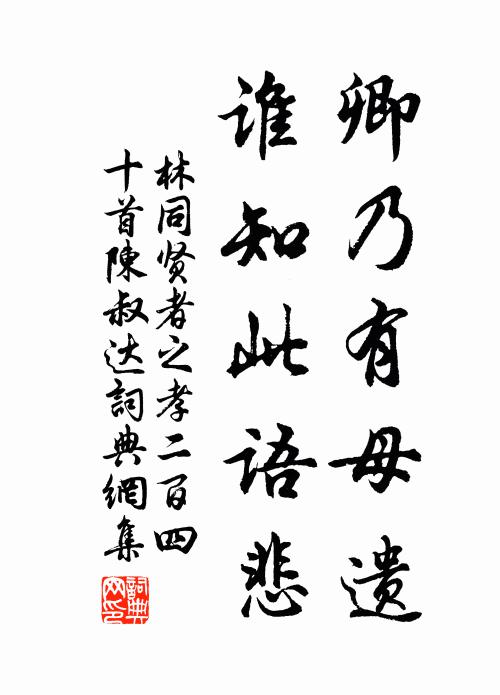 卿乃有母遗
谁知此语悲
林同贤者之孝二百四
十首陳叔达詞典網集